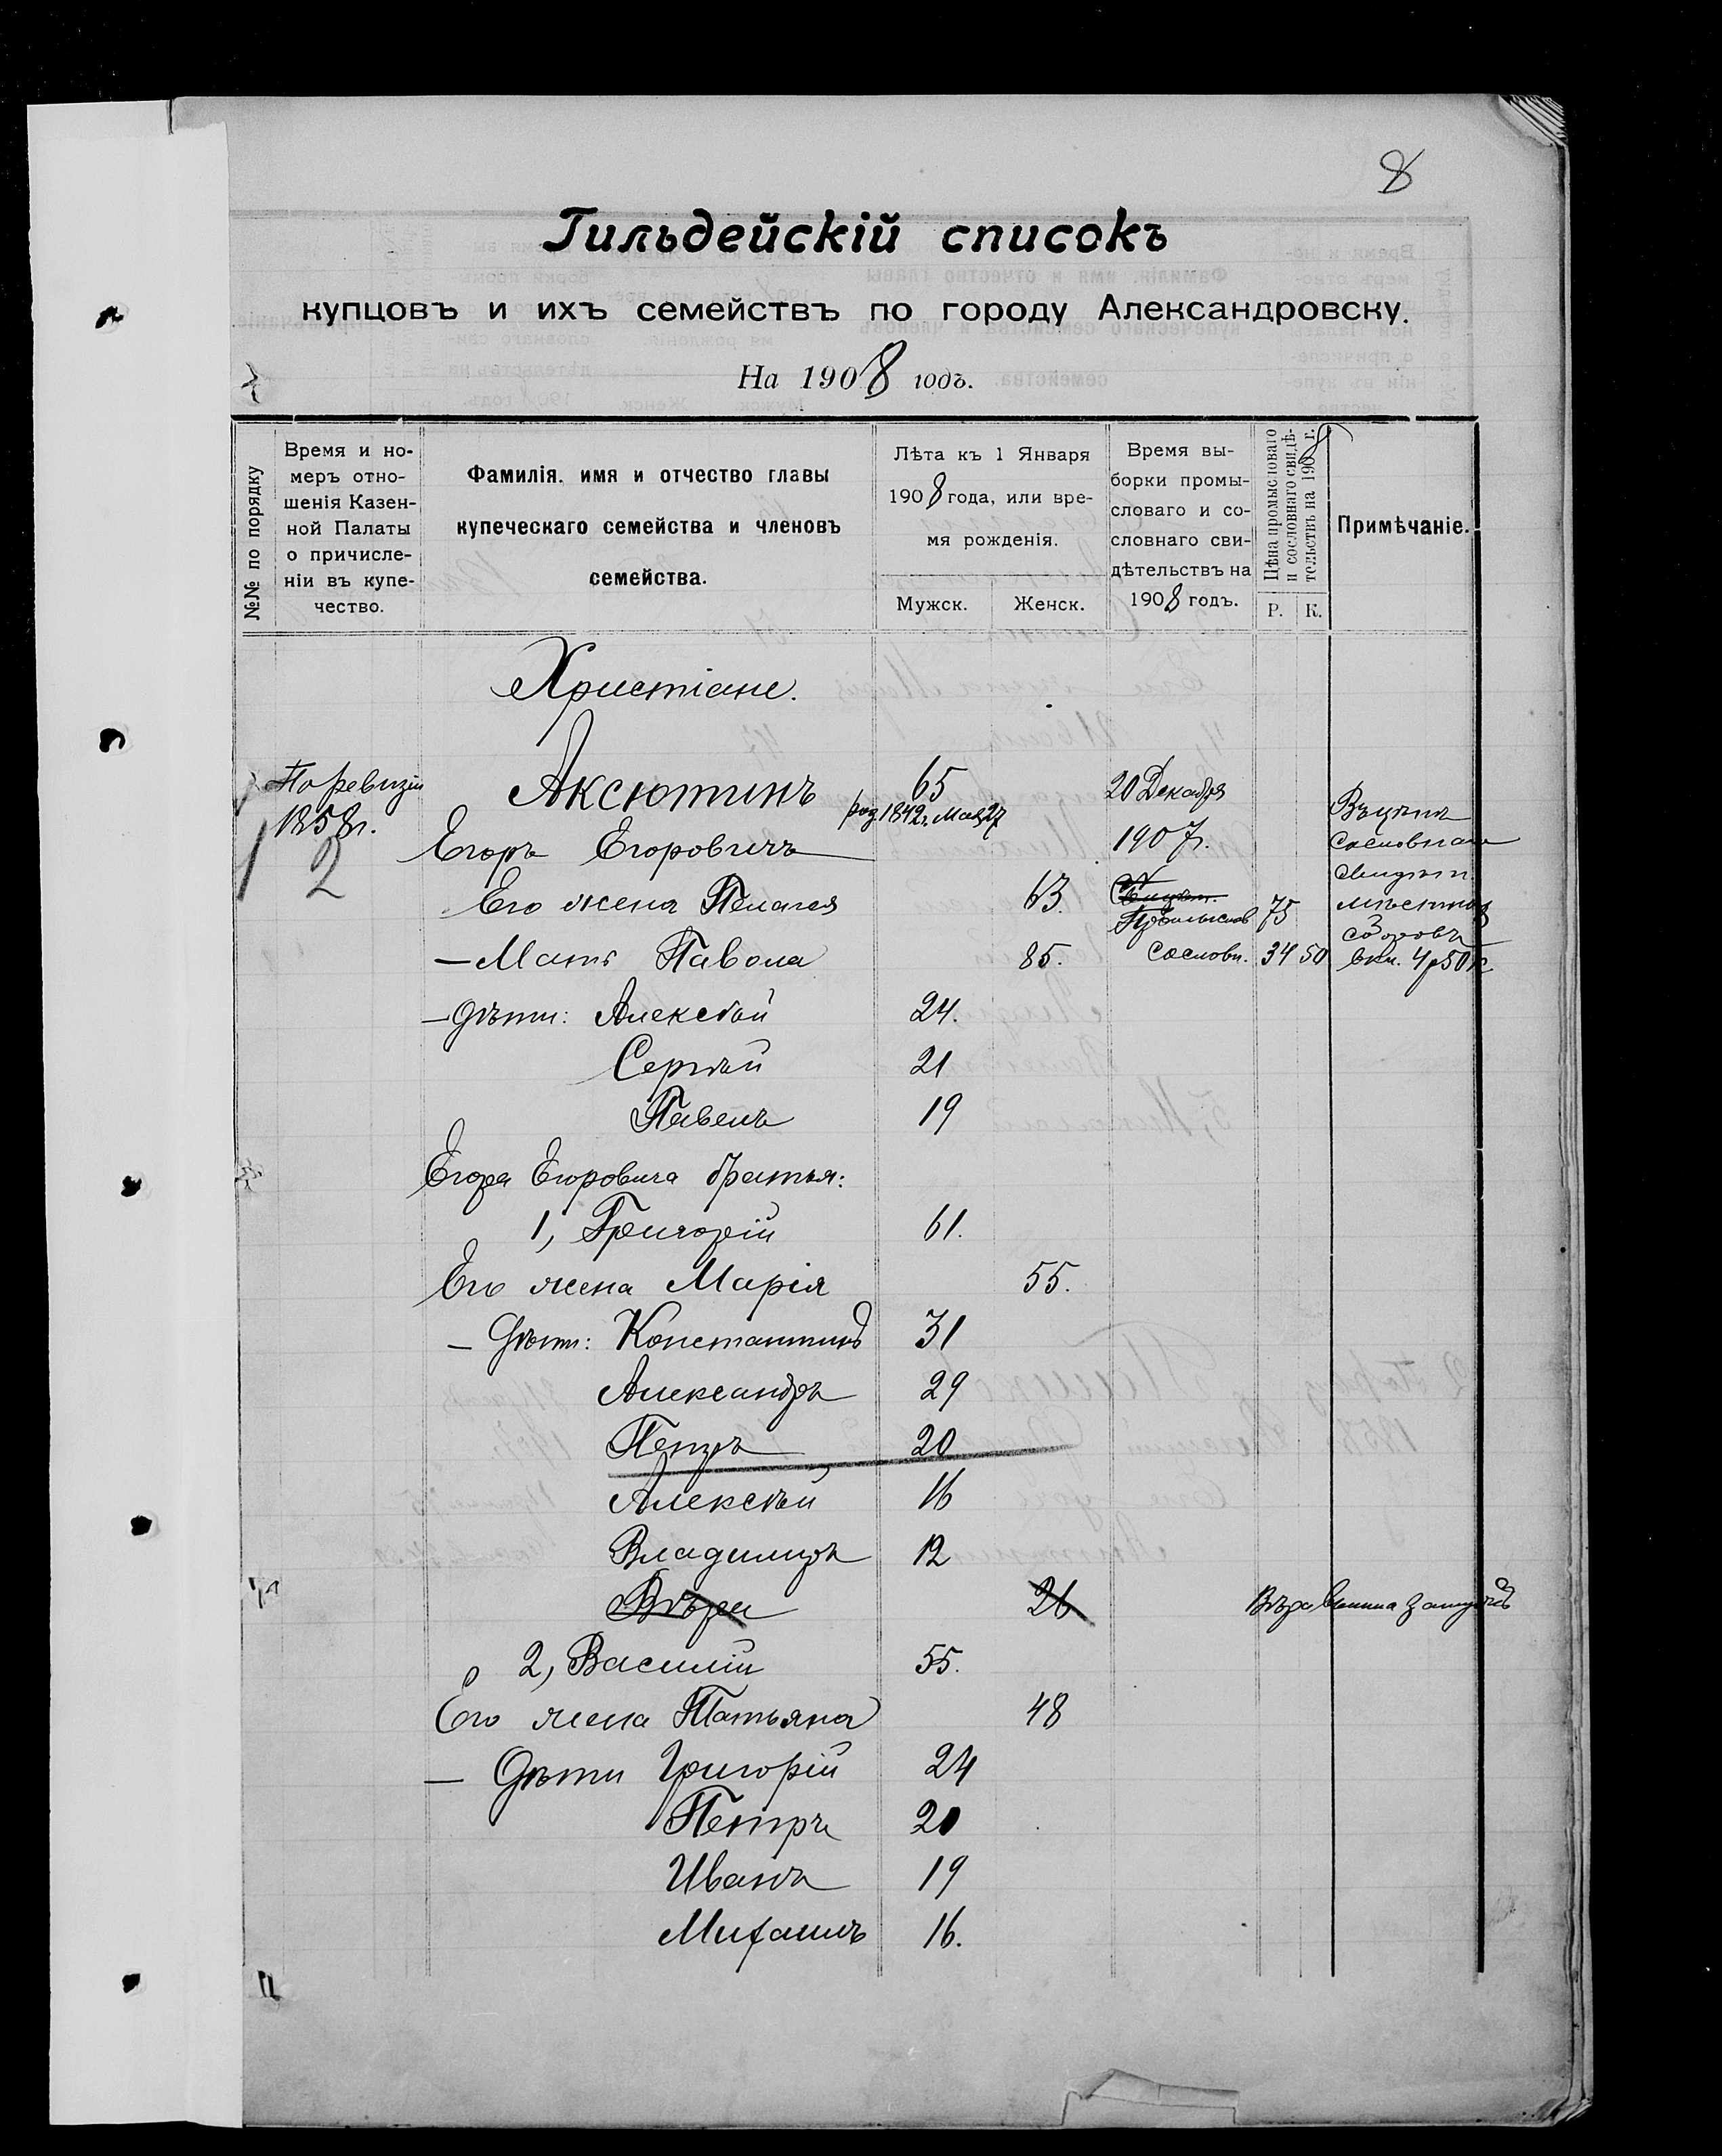 8
Гильдейскій списокъ
купцовъ и ихъ семействъ по городу Александровску.
На 1908 годъ.
№№ по порядку
Время и но-
меръ отно-
шенія Казен-
ной Палаты
о причисле-
ніи въ купе-
чество.
Фамилія, имя и отчество главы
купеческаго семейства и членовъ
семейства.
Лѣта къ 1 Января
1908 года, или вре-
мя рожденія.
Мужск. Женск.
Время вы-
борки промы-
словаго и со-
словнаго сви-
дѣтельствъ на
1908 годъ.
Цѣна промысловаго
и сословнаго свидѣ-
тельствъ на 1908 г.
Р. К.
Примѣчаніе.
Христіане.
По ревизіи Аксютинъ 65 20 Декабря
1858 г. род. 1842 г. Мая 27 Въ цѣнѣ
1 2 Егоръ Егоровичъ 1907 г. сословнаго
Его жена Пелагея 63. Промыслов 75 мѣстный сборъ
— Мать Павола 85. Сословн. 34 50 вкл. 4р50к
— Дѣти: Алексѣй 24.
Сергѣй 21
Павелъ 19
Егора Егоровича братья:
1, Григорій 61.
Его жена Марія 55.
— Дѣти: Константинъ 31
Александръ 29
Петръ 20
Алексѣй 16
Владиміръ 12
Вѣра 26 Вѣра вышла замужъ
2, Василій 55.
Его жена Татьяна 48
— Дѣти Григорій 24
Петръ 20
Иванъ 19
Михаилъ 16.